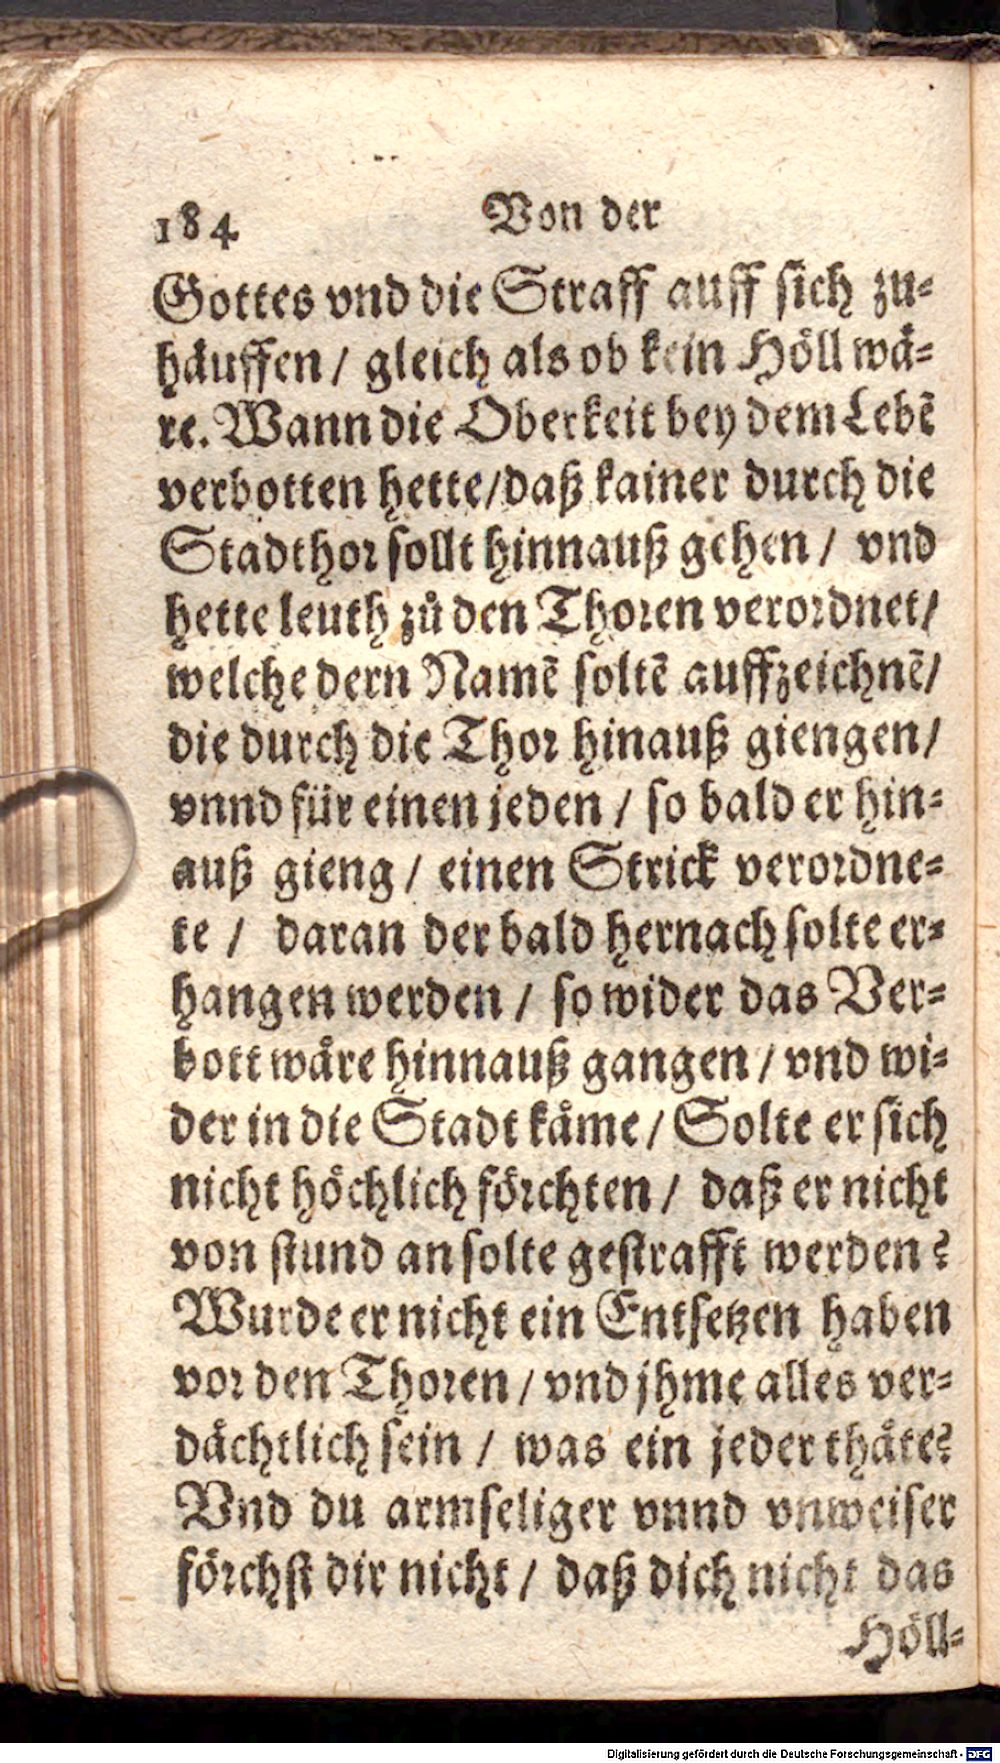 184 Von der
Gottes vnd die Straff auff sich zu-
häuffen / gleich als ob kein Höll wä-
re. Wann die Oberkeit bey dem Lebẽ
verbotten hette / daß kainer durch die
Stadthor sollt hinnauß gehen / vnd
hette leuth zů den Thoren verordnet /
welche dern Namẽ soltẽ auffzeichnẽ /
die durch die Thor hinauß giengen /
vnnd für einen jeden / so bald er hin-
auß gieng / einen Strick verordne-
te / daran der bald hernach solte er-
hangen werden / so wider das Ver-
bott wåre hinnauß gangen / vnd wi-
der in die Stadt kåme / Solte er sich
nicht höchlich förchten / daß er nicht
von stund an solte gestrafft werden?
Wurde er nicht ein Entsetzen haben
vor den Thoren / vnd jhme alles ver-
dächtlich sein / was ein jeder thåte?
Vnd du armseliger vnnd vnweiser
förchst dir nicht / daß dich nicht das
Höll-
Digitalisierung gefördert durch die Deutsche Forschungsgemeinschaft - DFG